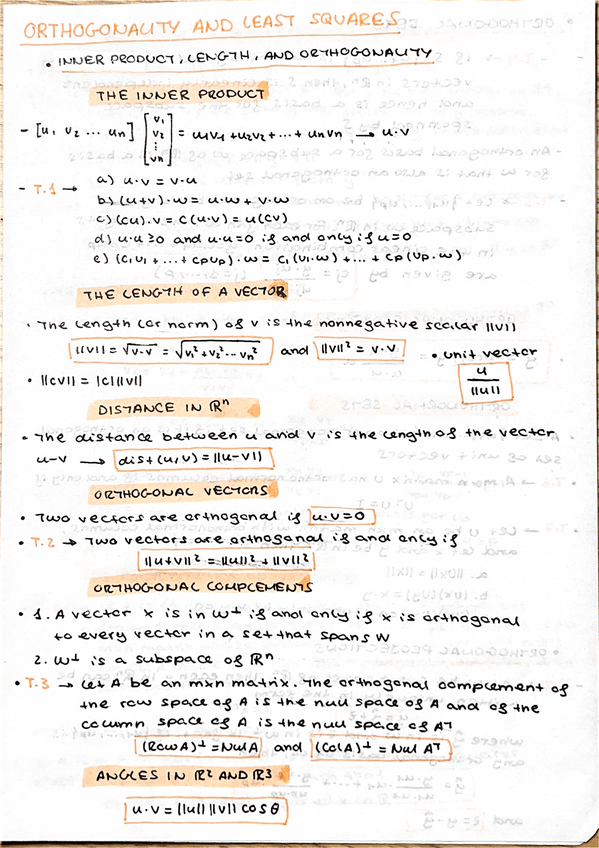 ORTHOGONALITY AND LEAST SQUARES
• INNER PRODUCT, LENGTH, AND ORTHOGONALITY
THE INNER PRODUCT
- [u₁ v₂ ... un] [v₁ v₂ ⋮ vn] = u₁v₁ + u₂v₂ + ... + unvn → u·v
- T.1 → a) u·v = v·u
b) (u+v)·w = u·w + v·w
c) (cu)·v = c(u·v) = u(cv)
d) u·u ≥ 0 and u·u = 0 if and only if u = 0
e) (c₁u₁ + ... + cpup)·w = c₁(u₁·w) + ... + cp(up·w)
THE LENGTH OF A VECTOR
• The length (or norm) of v is the nonnegative scalar ||v||
||v|| = √v·v = √v₁²+v₂²...vn² and ||v||² = v·v • unit vector
u/||u||
• ||cv|| = |c|||v||
DISTANCE IN ℝⁿ
• The distance between u and v is the length of the vector
u-v → dist(u,v) = ||u-v||
ORTHOGONAL VECTORS
• Two vectors are orthogonal if u·v=0
• T.2 → Two vectors are orthogonal if and only if
||u+v||² = ||u||² + ||v||²
ORTHOGONAL COMPLEMENTS
• 1. A vector x is in W⊥ if and only if x is orthogonal
to every vector in a set that spans W
2. W⊥ is a subspace of ℝⁿ
• T.3 → Let A be an mxn matrix. The orthogonal complement of
the row space of A is the null space of A and of the
column space of A is the null space of Aᵀ
(RowA)⊥ = NulA and (ColA)⊥ = Nul Aᵀ
ANGLES IN ℝ² AND ℝ³
u·v = ||u|| ||v|| cos θ